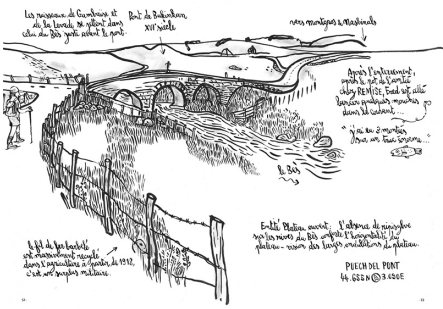 Les ruisseaux de Gambaïse et
de la Levade se jettent dans
celui du Bès juste avant le pont.
Pont de
XVIe siècle
vers montgros & Nasbinals
Après l'enterrement,
après le pot de l'amitié
chez REMISE, Fred est allé
lancer quelques mouches
dans le courant...
"j'ai vu 3 montées
sur un truc énorme..."
le Bès
le fil de fer barbelé
est massivement recyclé
dans l'agriculture à partir de 1918,
c'est un surplus militaire.
Entité Plateau ouvert : L'absence de ripisylve
sur les rives du Bès conforte l'horizontalité du
plateau - vision des larges ondulations du plateau.
PUECH DEL PONT
44.655N 3.050E